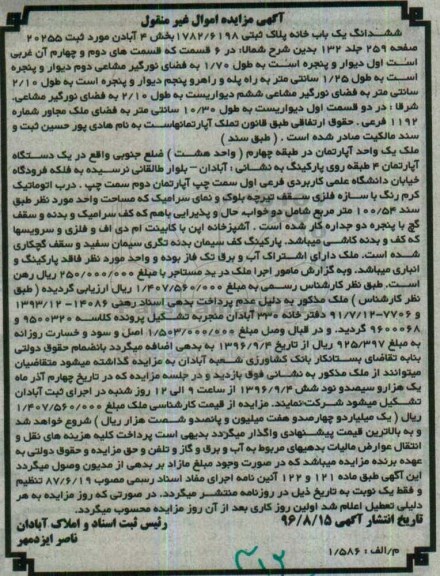 آگهی مزایده اموال غیر منقول
ششدانگ یک باب خانه پلاک ثبتی ۱۷۸۲/۶۱۹۸ بخش ۴ آبادن مورد ثبت ۲۰۲۵۵
صفحه ۲۵۹ جلد ۱۳۲ بدین شرح شمالا: در ۶ قسمت که قسمت های دوم و چهارم آن غربی
است اول دیوار و پنجره است به طول ۱/۷۰ به فضای نورگیر مشاعی دوم دیوار و پنجره
است به طول ۱/۲۵ سانتی متر به راه پله و راهرو پنجم دیوار و پنجره است به طول ۲/۱۰
سانتی متر به فضای نورگیر مشاعی ششم دیواریست به طول ۲/۱۰ به فضای نورگیر مشاعی.
شرقا : در دو قسمت اول دیواریست به طول ۱۰/۳۰ سانتی متر به فضای ملک مجاور شماره
۱۱۹۲ فرعی . حقوق ارتفاقی طبق قانون تملک آپارتمانهاست به نام هادی پور حسین ثبت و
سند مالکیت صادر شده است . ( طبق سند )
ملک یک واحد آپارتمان در طبقه چهارم ( واحد هشت ) ضلع جنوبی واقع در یک دستگاه
آپارتمان ۴ طبقه روی پارکینگ به نشانی : آبادان - بلوار طالقانی نرسیده به فلکه فرودگاه
خیابان دانشگاه علمی کاربردی فرعی اول سمت چپ آپارتمان دوم سمت چپ . درب اتوماتیک
کرم رنگ با سازه فلزی سقف تیرچه بلوک و نمای سرامیک که مساحت واحد مورد نظر طبق
سند ۱۰۰/۵۴ متر مربع شامل دو خواب، حال و پذیرایی باهم که کف سرامیک و بدنه و سقف
گچ با پنجره دو جداره کار شده است . آشپزخانه اپن با کابینت ام دی اف و فلزی و سرویسها
که کف و بدنه کاشی میباشد. پارکینگ کف سیمان بدنه تگری سیمان سفید و سقف گچکاری
شده است. ملک دارای اشتراک آب و برق تک فاز بوده و واحد مورد نظر فاقد پارکینگ و
انباری میباشد. وبه گزارش مامور اجرا ملک در ید مستاجر با مبلغ ۲۵۰/۰۰۰/۰۰۰ ریال رهن
است. طبق نظر کارشناس رسمی به مبلغ ۱/۴۰۷/۵۶۰/۰۰۰ ریال ارزیابی گردیده ( طبق
نظر کارشناس ) ملک مذکور به دلیل عدم پرداخت بدهی سناد رهنی ۱۴۰۸۶- ۱۳۹۳/۱۲
و ۷۷۰۶-۹۱/۷/۱۲ دفتر خانه ۳۳۰ آبادان منجربه تشکیل پرونده کلاسه ۹۵۰۰۳۲۰ و
۹۶۰۰۰۶۸ گردید. و در قبال وصل مبلغ ۱/۵۰۳/۰۰۰/۰۰۰ اصل و سود و خسارت روزانه
به مبلغ ۹۲۵/۳۹۷ ریال از تاریخ ۱۳۹۶/۹/۳ به بدهی اضافه میگردد بانضمام حقوق دولتی
بنابه تقاضای بستانکار بانک کشاورزی شعبه آبادان به مزایده گذاشته میشود متقاضیان
میتوانند از ملک مذکور به نشانی فوق بازدید و در جلسه مزایده که در تاریخ چهارم آذر ماه
یک هزارو سیصدو نود شش ۱۳۹۶/۹/۴ از ساعت ۹ الی ۱۲ روز شنبه در اجرای ثبت آبادان
تشکیل میشود شرکت نمایند. مزایده از قیمت کارشناسی ملک مبلغ ۱/۴۰۷/۵۶۰/۰۰۰
ریال ( یک میلیاردو چهارصدو هفت میلیون و پانصدو شصت هزار ریال ) شروع خواهد شد
و به بالاترین قیمت پیشنهادی واگذار میگردد بدیهی است پرداخت کلیه هزینه های نقل و
انتقال عوارض مالیات بدهیهای مربوط به آب و برق و گاز و تلفن و حق مزایده و حقوق دولتی به
عهده برنده مزایده میباشد که در صورت وجود مبلغ مازاد بر بدهی از مدیون وصول میگردد
این آگهی طبق ماده ۱۲۱ و ۱۲۲ آئین نامه اجرای مفاد اسناد رسمی مصوب ۸۷/۶/۱۹ تنظیم
و فقط یک نوبت به تاریخ ذیل در روزنامه منتشر میگردد. در صورتی که روز مزایده به هر
دلیلی تعطیل اعلام شد اولین روز کاری بعد از آن روز مزایده محسوب میگردد.
تاریخ انتشار آگهی ۹۶/۸/۱۵
رئیس ثبت اسناد و املاک آبادان
ناصر ایزدمهر
م/الف : ۱/۵۸۶